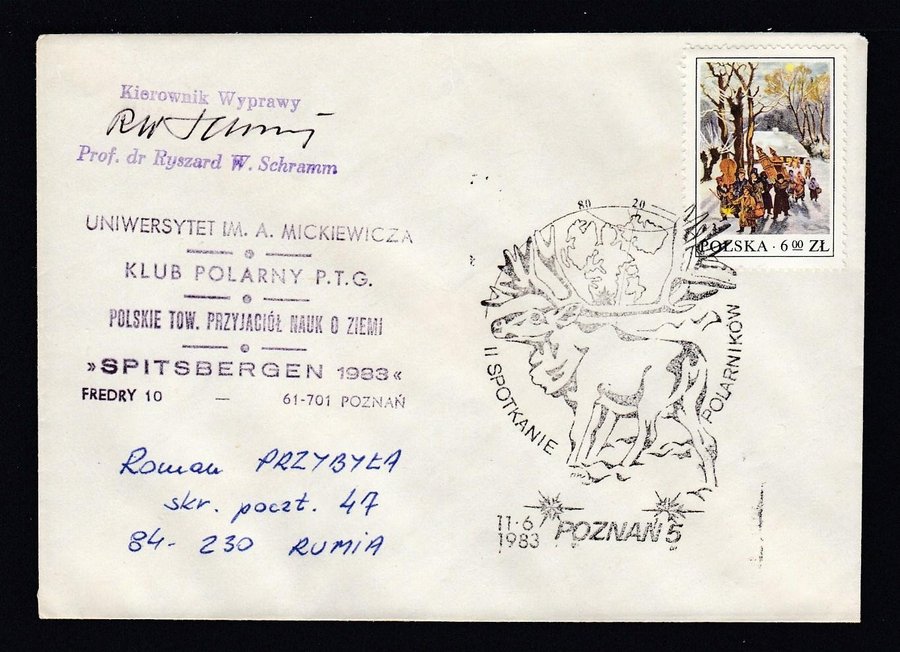 Kierownik Wyprawy
Prof. dr Ryszard W. Schramm
UNIWERSYTET IM. A. MICKIEWICZA
KLUB POLARNY P.T.G.
POLSKIE TOW. PRZYJACIÓŁ NAUK O ZIEMI
»SPITSBERGEN 1983«
FREDRY 10 — 61-701 POZNAŃ
Roman PRZYBYŁA
skr. poczt. 47
84-230 RUMIA
POLSKA · 6 00 ZŁ
80 20
II SPOTKANIE POLARNIKÓW
11·6
1983 POZNAŃ 5